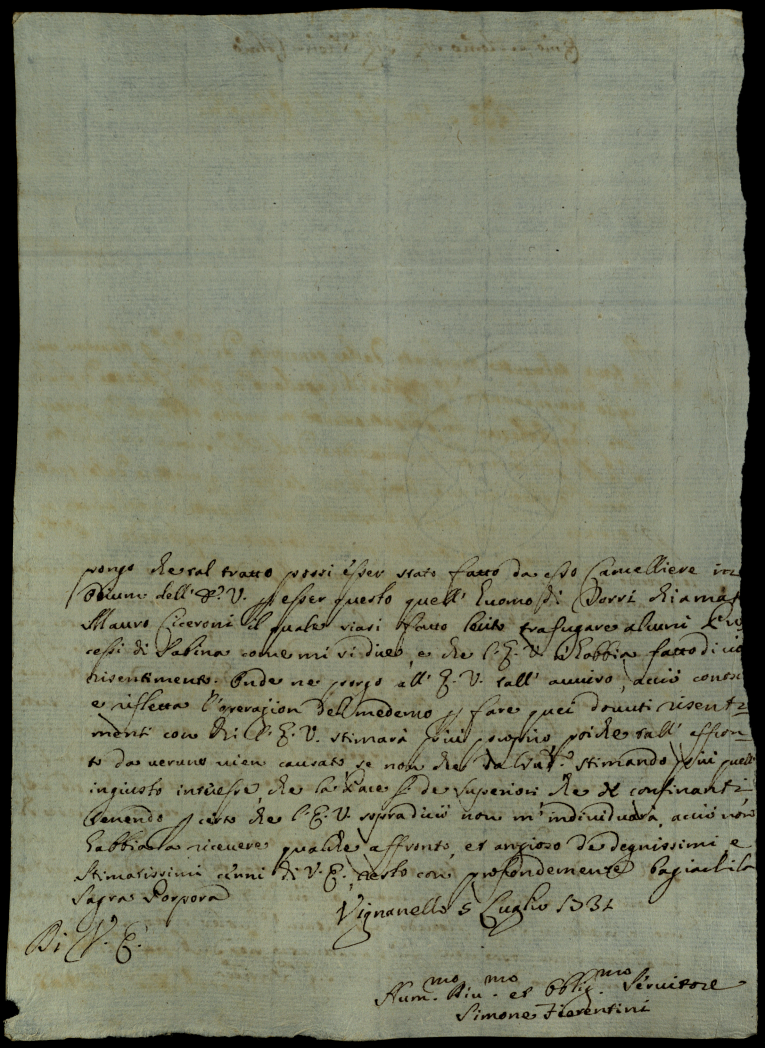 pongo che tal tratto possi esser stato fatto da esso Cancelliere in
odium dell' E. V. p esser questo quell' huomo di Torri chiamat
Mauro Ciceroni il quale siasi fatto lecito trafugare alcuni Pro
cessi di Sabina come mi si dice, e che l' E. V. habbia fatto di ciò
risentimento. Onde ne porgo all' E. V. tall' avviso, acciò conos
e rifletta l'operazion del medemo p fare poi i dovuti risenti
menti con chi l' E. V. stimarà più proprio poiche tall' affron
to da veruno vien causato se non che da stimando più quell'
ingiusto interesse, che la Pace de Superiori che de confinanti
tenendo p certo che l' E. V. sopra di ciò non m' individuarà, acciò non
habbia a ricevere qualche affronto, et anzioso de degnissimi e
stimatissimi cenni di V. E. resto con profondemente bagiarli la
Sagra Porpora
Vignanello 5 Luglio 1731
Di V. E.
Hum.mo Div.mo et Obblig.mo Servitore
Simone Fiorentini